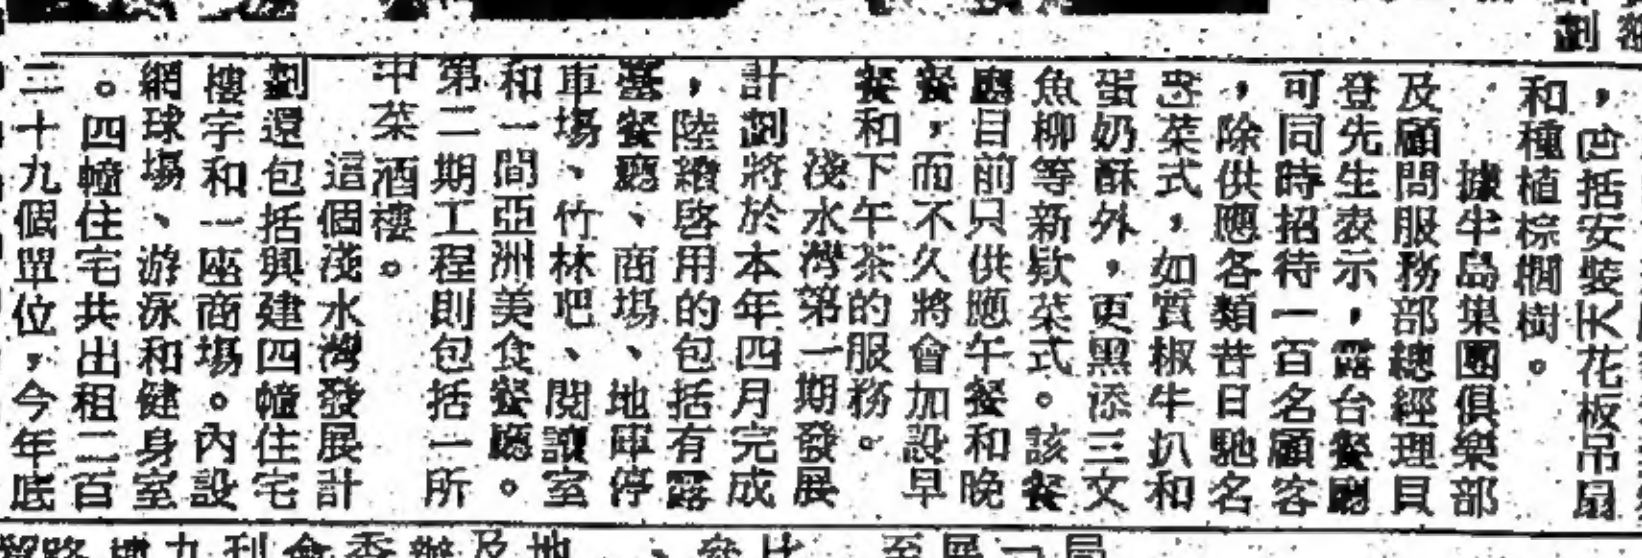 ，包括安裝天花板吊扇
和種植棕櫚樹。
據半島集團俱樂部
及顧問服務部總經理貝
登先生表示，露台餐廳
可同時招待一百名顧客
，除供應各類昔日馳名
菜式，如質椒牛扒和
蛋奶酥外，更黑添三文
魚柳等新欵菜式。該餐
廳目前只供應午餐和晚
餐，而不久將會加設早
餐和下午茶的服務。
淺水灣第一期發展
計劃將於本年四月完成
，陸續啓用的包括有露
臺餐廳、商場、地庫停
車場、竹林吧、閱讀室
和一間亞洲美食餐廳。
第二期工程則包括一所
中菜酒樓。
這個淺水灣發展計
劃還包括興建四幢住宅
樓宇和一座商場。內設
網球場、游泳和健身室
。四幢住宅共出租二百
二十九個單位，今年底